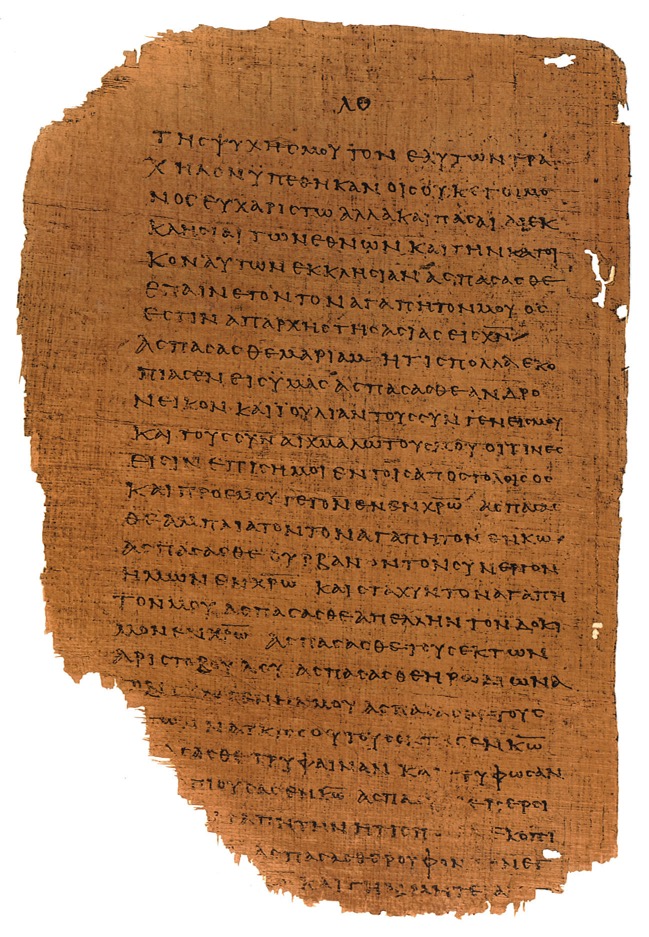 ΛΘ
ΤΗϹ ΨΥΧΗϹ ΜΟΥ ΤΟΝ ΕΑΥΤΩΝ ΤΡΑ
ΧΗΛΟΝ ΥΠΕΘΗΚΑΝ ΟΙϹ ΟΥΚ ΕΓΩ ΜΟ
ΝΟϹ ΕΥΧΑΡΙϹΤΩ ΑΛΛΑ ΚΑΙ ΠΑϹΑΙ ΑΙ ΕΚ
ΚΛΗϹΙΑΙ ΤΩΝ ΕΘΝΩΝ ΚΑΙ ΤΗΝ ΚΑΤ ΟΙ
ΚΟΝ ΑΥΤΩΝ ΕΚΚΛΗϹΙΑΝ ΑϹΠΑϹΑϹΘΕ
ΕΠΑΙΝΕΤΟΝ ΤΟΝ ΑΓΑΠΗΤΟΝ ΜΟΥ ΟϹ
ΕϹΤΙΝ ΑΠΑΡΧΗϹ ΤΗϹ ΑϹΙΑϹ ΕΙϹ Χ̅Ν̅
ΑϹΠΑϹΑϹΘΕ ΜΑΡΙΑΜ ΗΤΙϹ ΠΟΛΛΑ ΕΚΟ
ΠΙΑϹΕΝ ΕΙϹ ΥΜΑϹ ΑϹΠΑϹΑϹΘΕ ΑΝΔΡΟ
ΝΕΙΚΟΝ ΚΑΙ ΙΟΥΛΙΑΝ ΤΟΥϹ ϹΥΝΓΕΝΕΙϹ ΜΟΥ
ΚΑΙ ΤΟΥϹ ϹΥΝΑΙΧΜΑΛΩΤΟΥϹ ΜΟΥ ΟΙΤΙΝΕϹ
ΕΙϹΙΝ ΕΠΙϹΗΜΟΙ ΕΝ ΤΟΙϹ ΑΠΟϹΤΟΛΟΙϹ ΟϹ
ΚΑΙ ΠΡΟ ΕΜΟΥ ΓΕΓΟΝΕΝ ΕΝ Χ̅Ρ̅Ω̅ ΑϹΠΑϹΑϹ
ΘΕ ΑΜΠΛΙΑΤΟΝ ΤΟΝ ΑΓΑΠΗΤΟΝ ΕΝ Κ̅Ω̅
ΑϹΠΑϹΑϹΘΕ ΟΥΡΒΑΝΟΝ ΤΟΝ ϹΥΝΕΡΓΟΝ
ΗΜΩΝ ΕΝ Χ̅Ρ̅Ω̅ ΚΑΙ ϹΤΑΧΥΝ ΤΟΝ ΑΓΑΠΗ
ΤΟΝ ΜΟΥ ΑϹΠΑϹΑϹΘΕ ΑΠΕΛΛΗΝ ΤΟΝ ΔΟΚΙ
ΜΟΝ ΕΝ Χ̅Ρ̅Ω̅ ΑϹΠΑϹΑϹΘΕ ΤΟΥϹ ΕΚ ΤΩΝ
ΑΡΙϹΤΟΒΟΥΛΟΥ ΑϹΠΑϹΑϹΘΕ ΗΡΩΔΙΩΝΑ
ΜΟΥ ΑϹΠΑϹΑϹΘΕ ΤΟΥϹ
ΝΑΡΚΙϹϹΟΥ ΤΟΥϹ ΕΝ Κ̅Ω̅
ϹΑϹΘΕ ΤΡΥΦΑΙΝΑΝ ΚΑΙ ΤΡΥΦΩϹΑΝ
ΠΙΟΥϹΑϹ ΕΝ Κ̅Ω̅ ΑϹΠΑ ΠΕΡϹΙ
ΑΠΗΤΗΝ ΗΤΙϹ Π ΕΚΟΠΙ
ΑϹΠΑϹΑϹΘΕ ΡΟΥΦΟΝ
ΚΑΙ ΤΗΝ